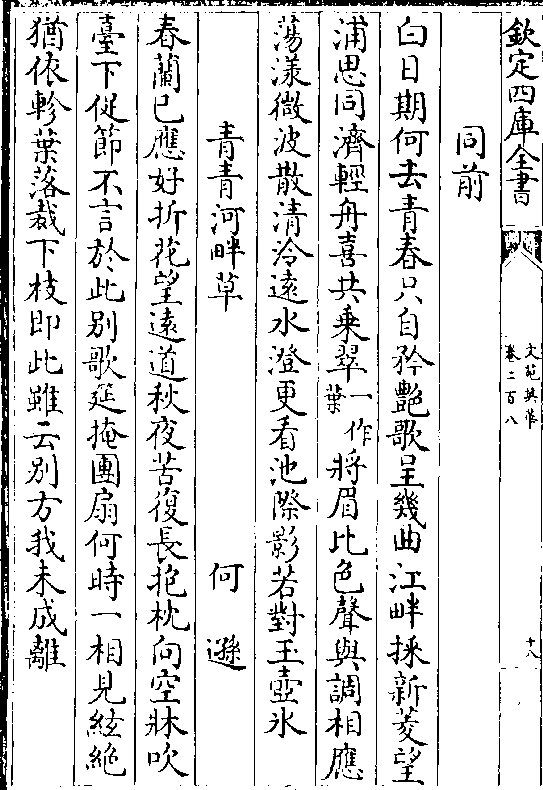 欽定四庫全書
文苑英華
卷二百八
十八
同前
白日期何去青春只自矜艷歌呈幾曲江畔採新菱望
浦思同濟輕舟喜共乘翠一作葉將眉比色聲與調相應
蕩漾微波散清泠遠水澄更看池際影若對玉壺氷
青青河畔草 何遜
春蘭已應好折花望遠道秋夜苦復長抱枕向空牀吹
臺下促節不言於此别歌筵掩團扇何時一相見絃絶
猶依軫葉落裁下枝即此雖云别方我未成離